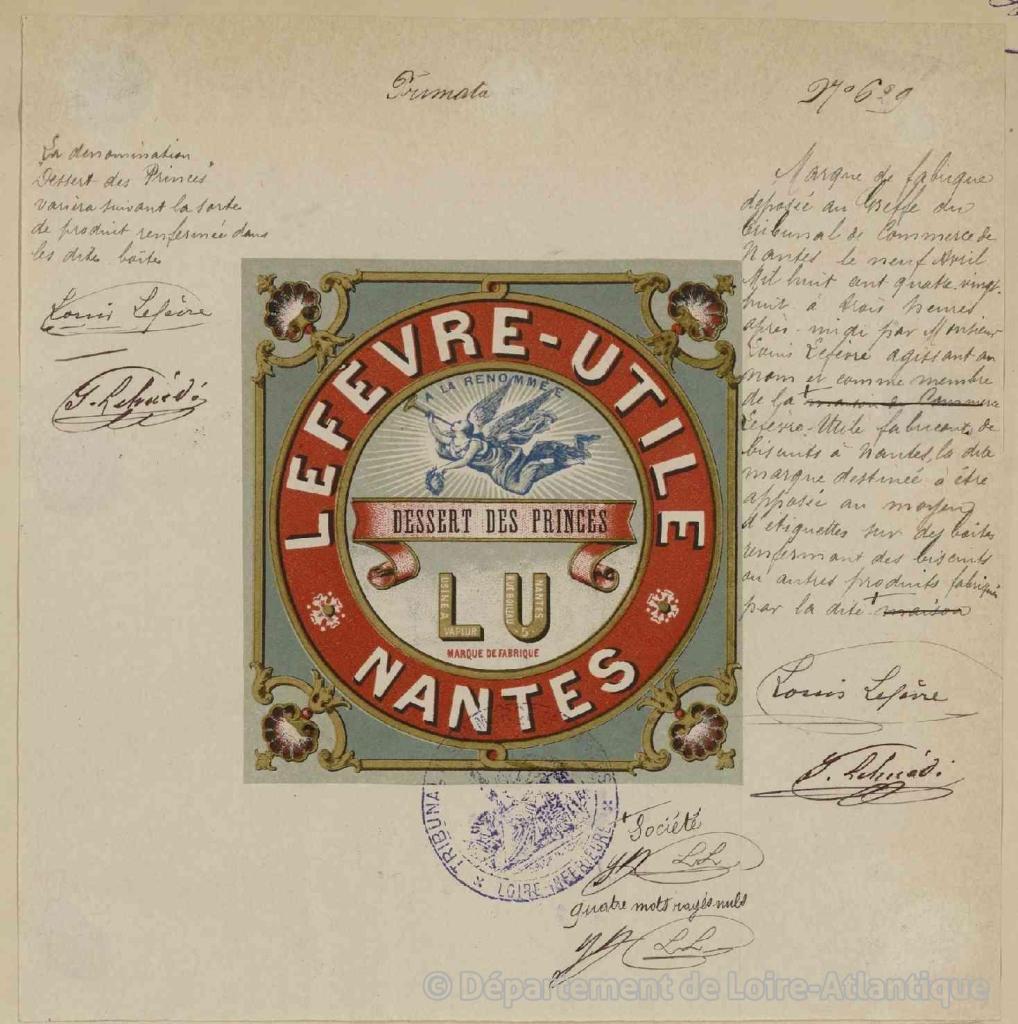 Primata
N° 629
La denomination
"Dessert des Princes"
variera suivant la sorte
de produit renfermée dans
les dites boîtes
Louis Lefèvre
Marque de fabrique
déposée au Greffe du
tribunal de Commerce de
Nantes le neuf Avril
Mil huit cent quatre vingt
huit à trois heures
après-midi par Monsieur
Louis Lefèvre agissant au
nom et comme membre
de la + maison de Commerce
Lefèvre-Utile fabricants de
biscuits à Nantes, la dite
marque destinée à être
apposée au moyen
d'étiquettes sur des boîtes
renfermant des biscuits
ou autres produits fabriqués
par la dite + maison
Louis Lefèvre
LEFÈVRE-UTILE
A LA RENOMMÉE
DESSERT DES PRINCES
LU
USINE A VAPEUR
RUE BOILEAU 5
NANTES
MARQUE DE FABRIQUE
NANTES
TRIBUNAL
* LOIRE-INFÉRIEURE *
+ Société
L.L.
quatre mots rayés nuls
L.L.
© Département de Loire-Atlantique